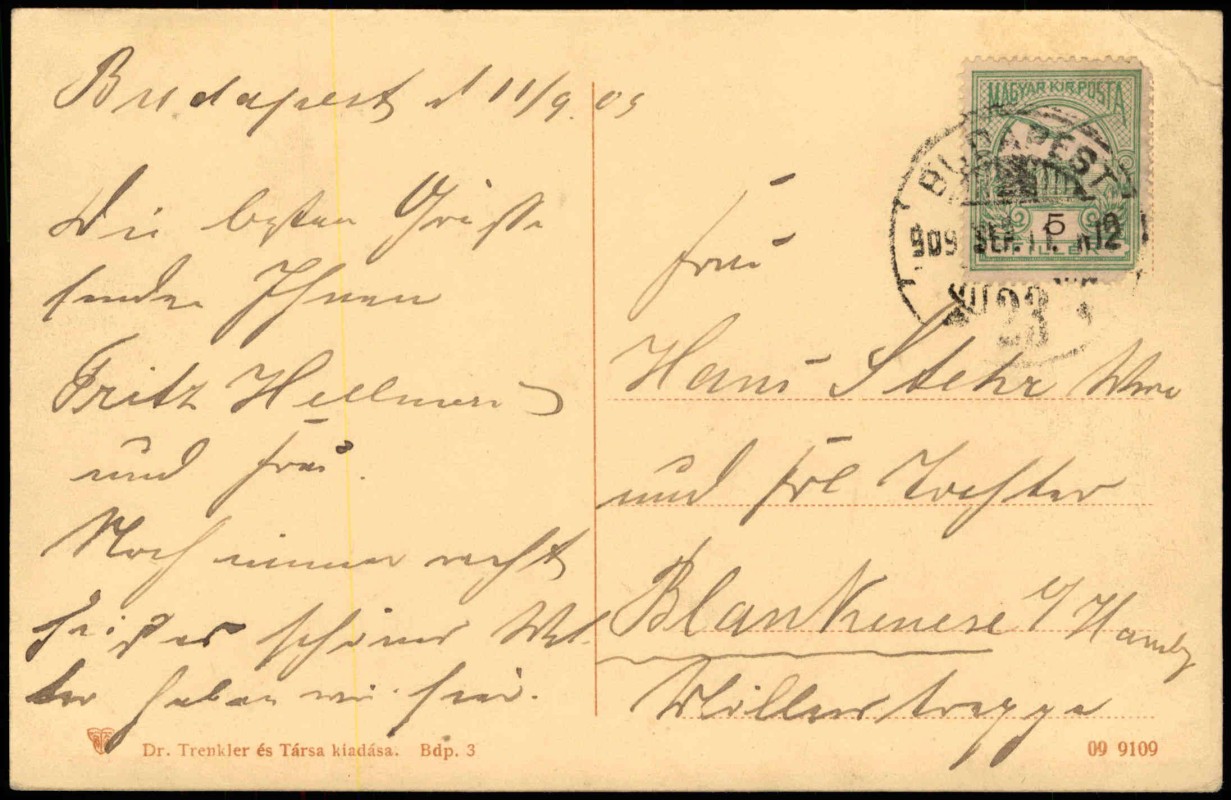 Budapest d 11/9. 09
Die besten Grüße
senden Ihnen
Fritz Hellmer
und Frau.
Noch immer recht
schönes Wet-
ter haben wir hier.
Frau
Hans Stehr Wwe
und Frl Tochter
Blankenese b/ Hambg
Möllers treppe
MAGYAR KIR. POSTA
5
FILLÉR
BUDAPEST
909 SEP. 11. N12
Dr. Trenkler és Társa kiadása. Bdp. 3
09 9109